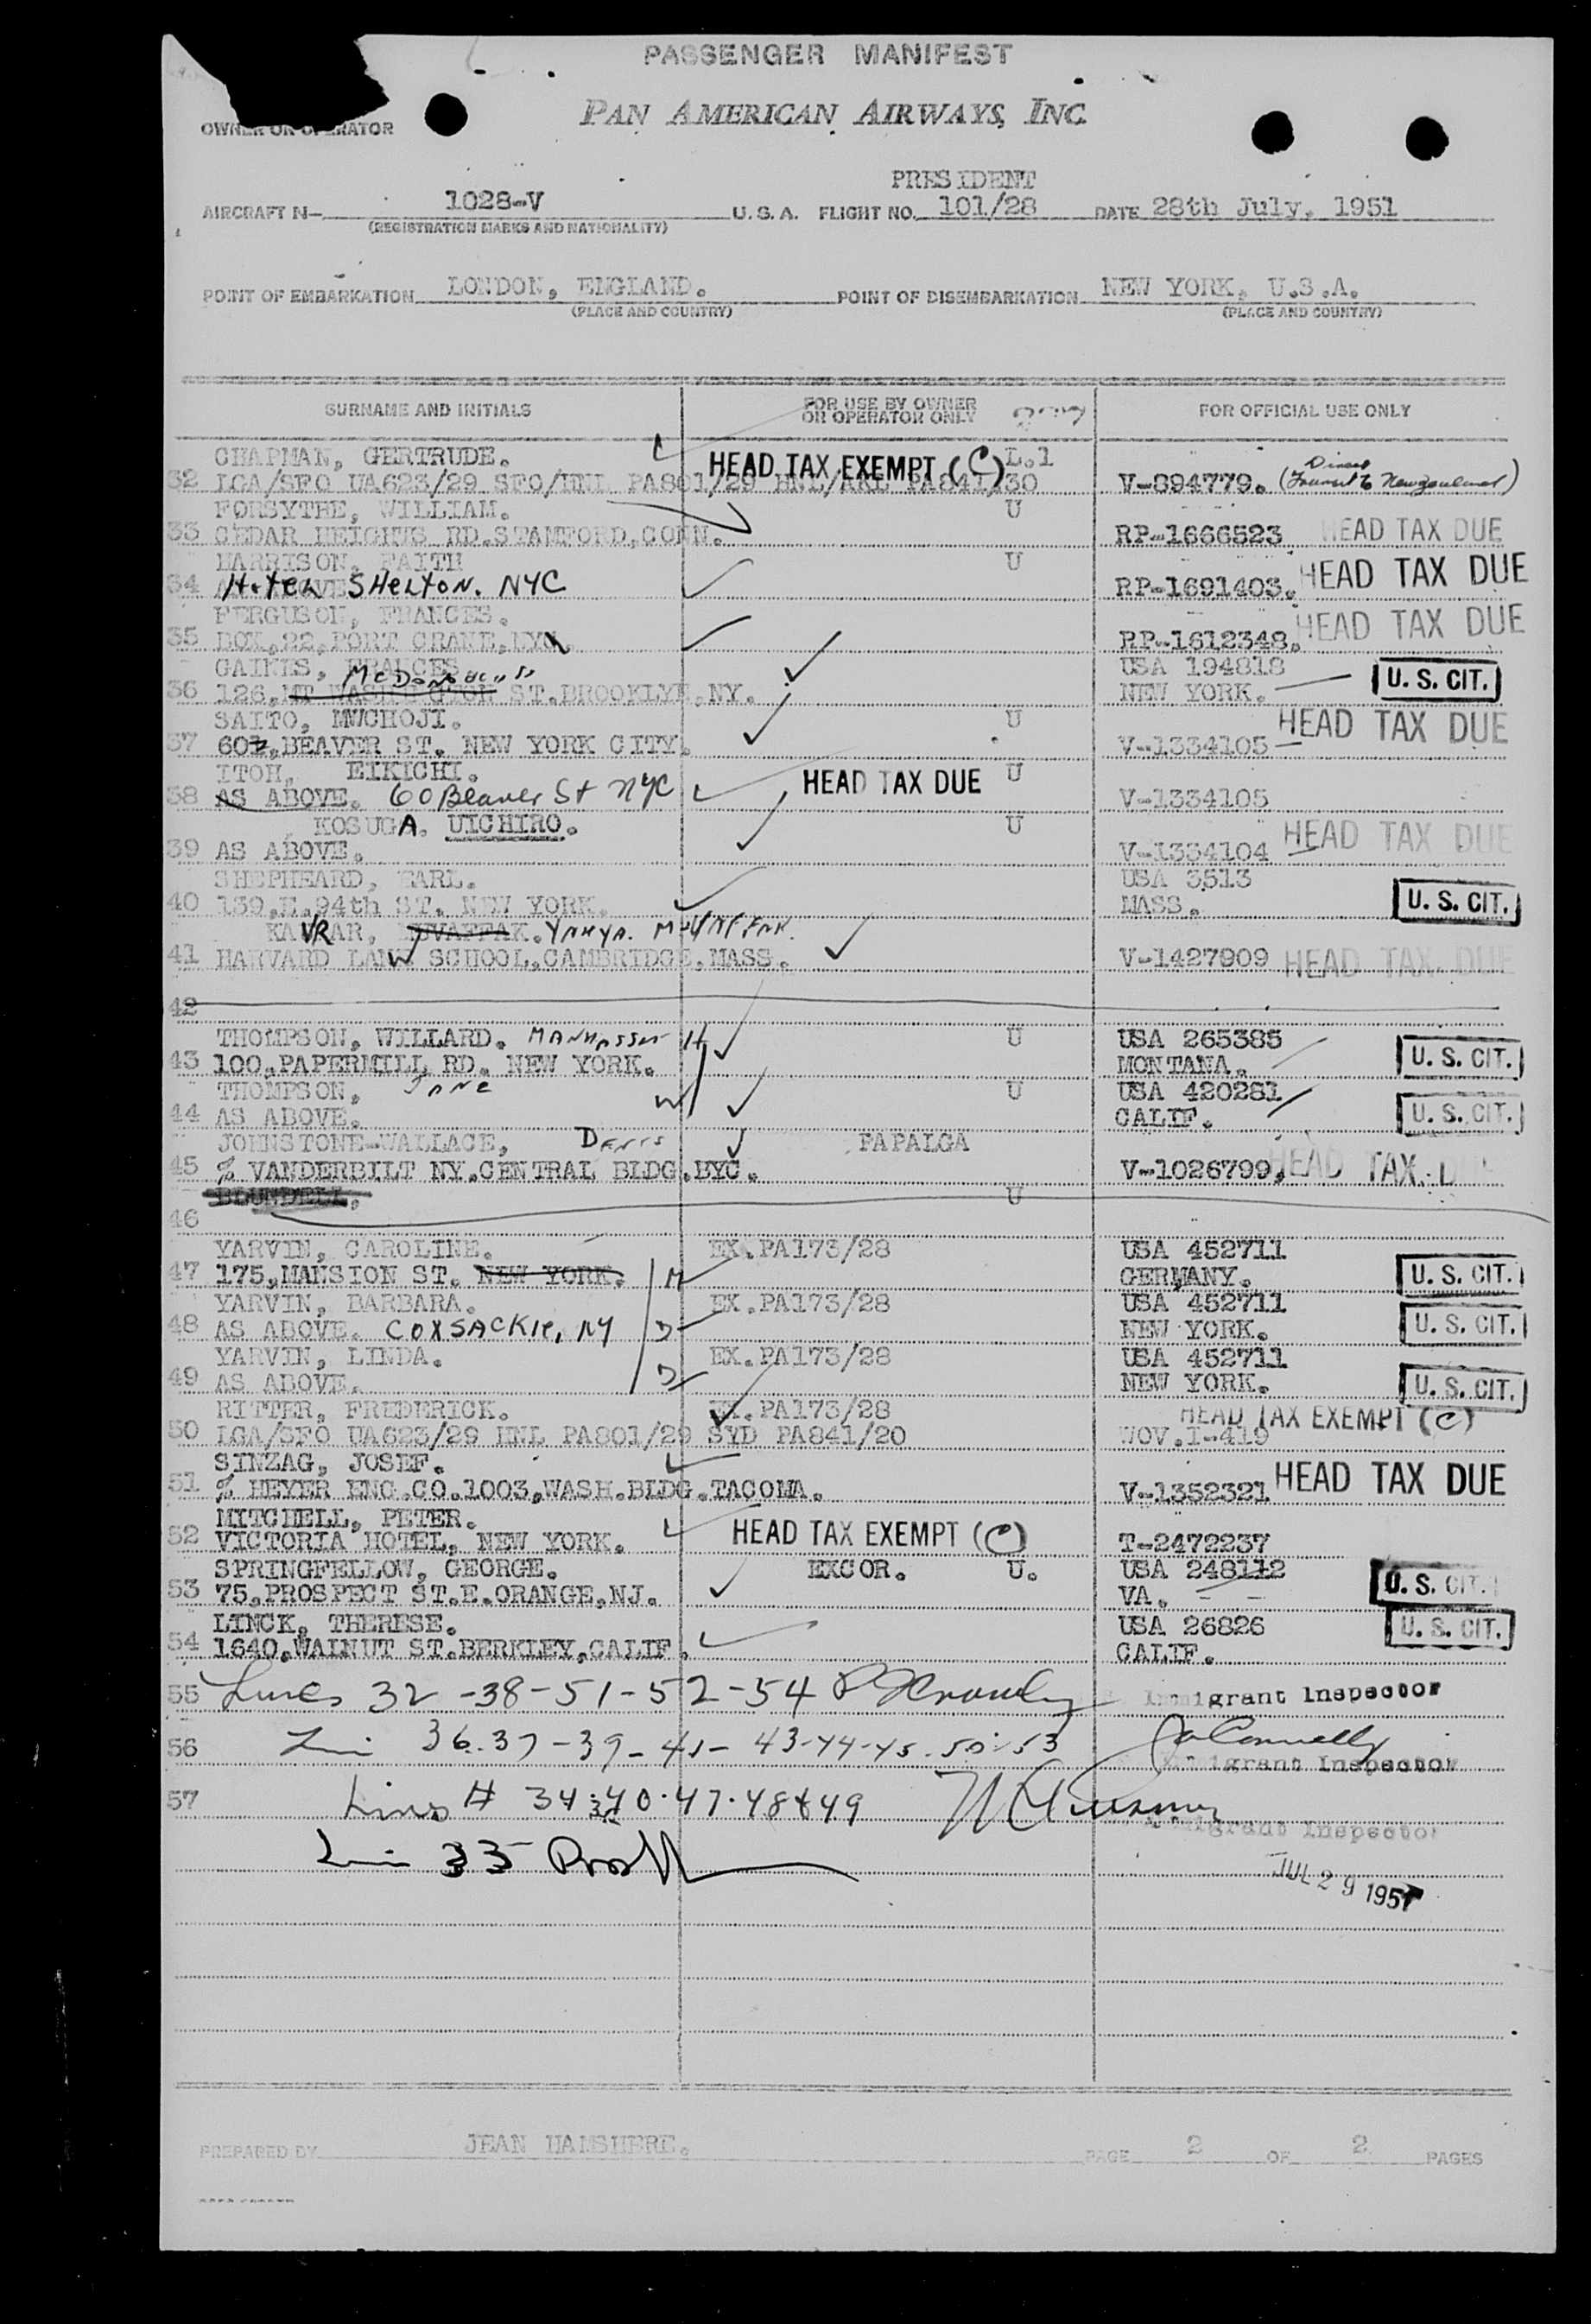 PASSENGER MANIFEST
PAN AMERICAN AIRWAYS, INC.
OWNER OR OPERATOR
PRESIDENT
AIRCRAFT N- 1028-V U.S.A. FLIGHT NO. 101/28 DATE 28th July, 1951
(REGISTRATION MARKS AND NATIONALITY)
POINT OF EMBARKATION LONDON, ENGLAND. POINT OF DISEMBARKATION NEW YORK, U.S.A.
(PLACE AND COUNTRY) (PLACE AND COUNTRY)
SURNAME AND INITIALS FOR USE BY OWNER OR OPERATOR ONLY FOR OFFICIAL USE ONLY
CHAPMAN, GERTRUDE. HEAD TAX EXEMPT (C) L.1
32 LGA/SFO UA623/29 SFO/HNL PA801/29 HNL/AKL PA841/30 V-894779. (Direct Transit to
FORSYTHE, WILLIAM. U
33 CEDAR HEIGHTS RD.STAMFORD,CONN. RP-1666523 HEAD TAX DUE
HARRISON, FAITH U
34 Hotel SHELTON. NYC RP-1691403. HEAD TAX DUE
FERGUSON, FRANCES.
35 BOX,22,PORT CRANE,NY. RP-1612348. HEAD TAX DUE
GAINES, FRANCES USA 194818
36 126, MT WASHINGTON ST.BROOKLYN,NY. NEW YORK. U. S. CIT.
SAITO, MWCHOJI. U HEAD TAX DUE
37 60,BEAVER ST. NEW YORK CITY. V-1334105
ITOH, EIKICHI. HEAD TAX DUE U
38 AS ABOVE. 60 Beaver St NYC V-1334105
KOSUGA. UICHIRO. U
39 AS ABOVE. V-1334104 HEAD TAX DUE
SHEPHEARD, EARL. USA 3513
40 139.E.94th ST. NEW YORK. MASS. U. S. CIT.
YAHYA.
41 HARVARD LAW SCHOOL,CAMBRIDGE,MASS. V-1427909 HEAD TAX DUE
42
THOMPSON, WILLARD. U USA 265385
43 100,PAPERMILL RD. NEW YORK. H MONTANA. U. S. CIT.
THOMPSON, Jane U USA 420281
44 AS ABOVE. W CALIF. U. S. CIT.
JOHNSTONE-WALLACE, Denis PAPALGA
45 % VANDERBILT NY.CENTRAL BLDG.BYC. V-1026799. HEAD TAX D
BLUNDELL, U
46
YARVIN, CAROLINE. EX.PA173/28 USA 452711
47 175,MANSION ST. NEW YORK. M GERMANY. U. S. CIT.
YARVIN, BARBARA. EX.PA173/28 USA 452711
48 AS ABOVE. COXSACKIE, NY D NEW YORK. U. S. CIT.
YARVIN, LINDA. EX.PA173/28 USA 452711
49 AS ABOVE. D NEW YORK. U. S. CIT.
RITTER, FREDERICK. EX.PA173/28 HEAD TAX EXEMPT (C)
50 LGA/SFO UA623/29 HNL PA801/29 SYD PA841/20 WOV.I-419
SINZAG, JOSEF.
51 % HEYER ENG.CO.1003,WASH.BLDG.TACOMA. V-1352321 HEAD TAX DUE
MITCHELL, PETER.
52 VICTORIA HOTEL, NEW YORK. HEAD TAX EXEMPT (C) T-2472237
SPRINGFELLOW, GEORGE. EXCOR. U. USA 248112
53 75,PROSPECT ST.E.ORANGE,NJ. VA. U. S. CIT.
LINCK, THERESE. USA 26826 U. S. CIT.
54 1640,WALNUT ST.BERKLEY,CALIF. CALIF.
55 Lines 32 -38-51-52-54 Immigrant Inspector
56 36.37-39-41-43-44-45-50-53 Connelly
Immigrant Inspector
57 Lines # 34 40.47.48&49
Immigrant Inspector
Line 35
JUL 29 1951
PREPARED BY JEAN HAMSHERE. PAGE 2 OF 2 PAGES